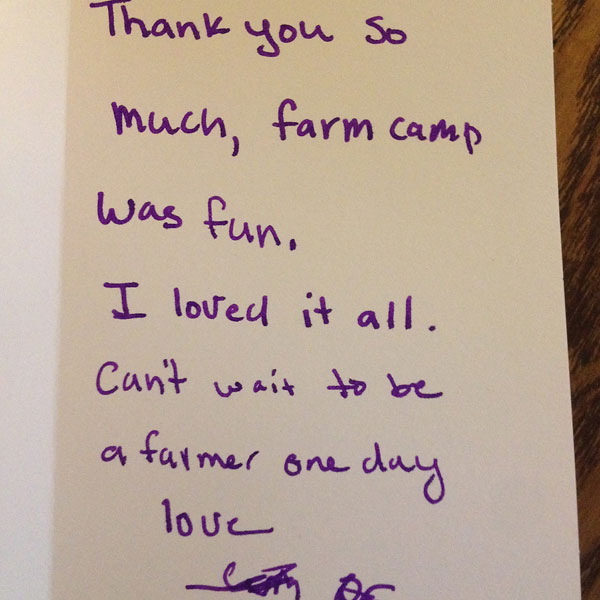 Thank you so
much, farm camp
was fun.
I loved it all.
Can't wait to be
a farmer one day
love